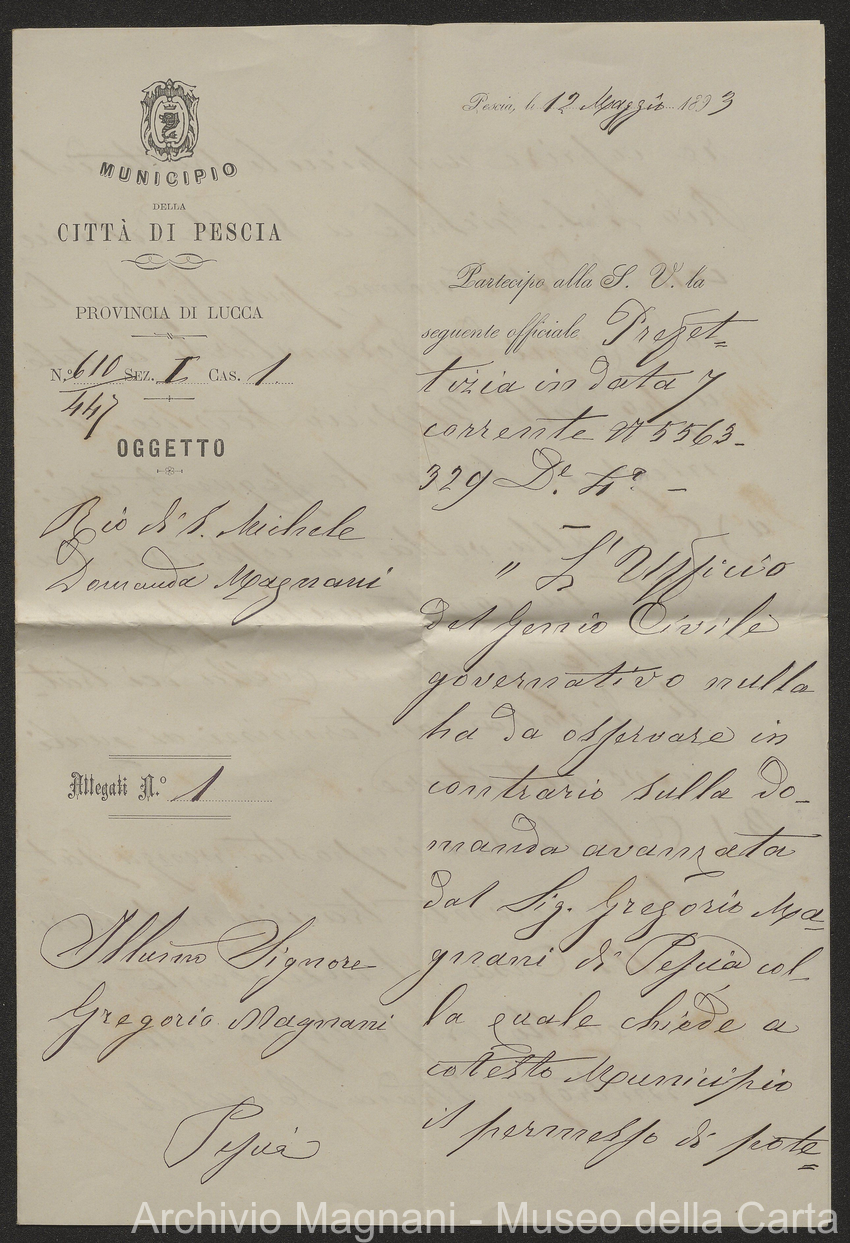 MUNICIPIO
DELLA
CITTÀ DI PESCIA
PROVINCIA DI LUCCA
N.º 610 SEZ. I CAS. 1
447
OGGETTO
Rio di S. Michele
Domanda Magnani
Allegati N.º 1
Illumo Signore
Gregorio Magnani
Pescia
Pescia, li 12 Maggio 1893
Partecipo alla S. V. la
seguente officiale Prefet=
tizia in data 7
corrente N 5563-
329 De. 4ª. -
" L'Ufficio
del Genio Civile
governativo nulla
ha da osservare in
contrario sulla do-
manda avanzata
dal Sig. Gregorio Ma=
gnani di Pescia col-
la quale chiede a
cotesto Municipio
il permesso di pote=
Archivio Magnani - Museo della Carta